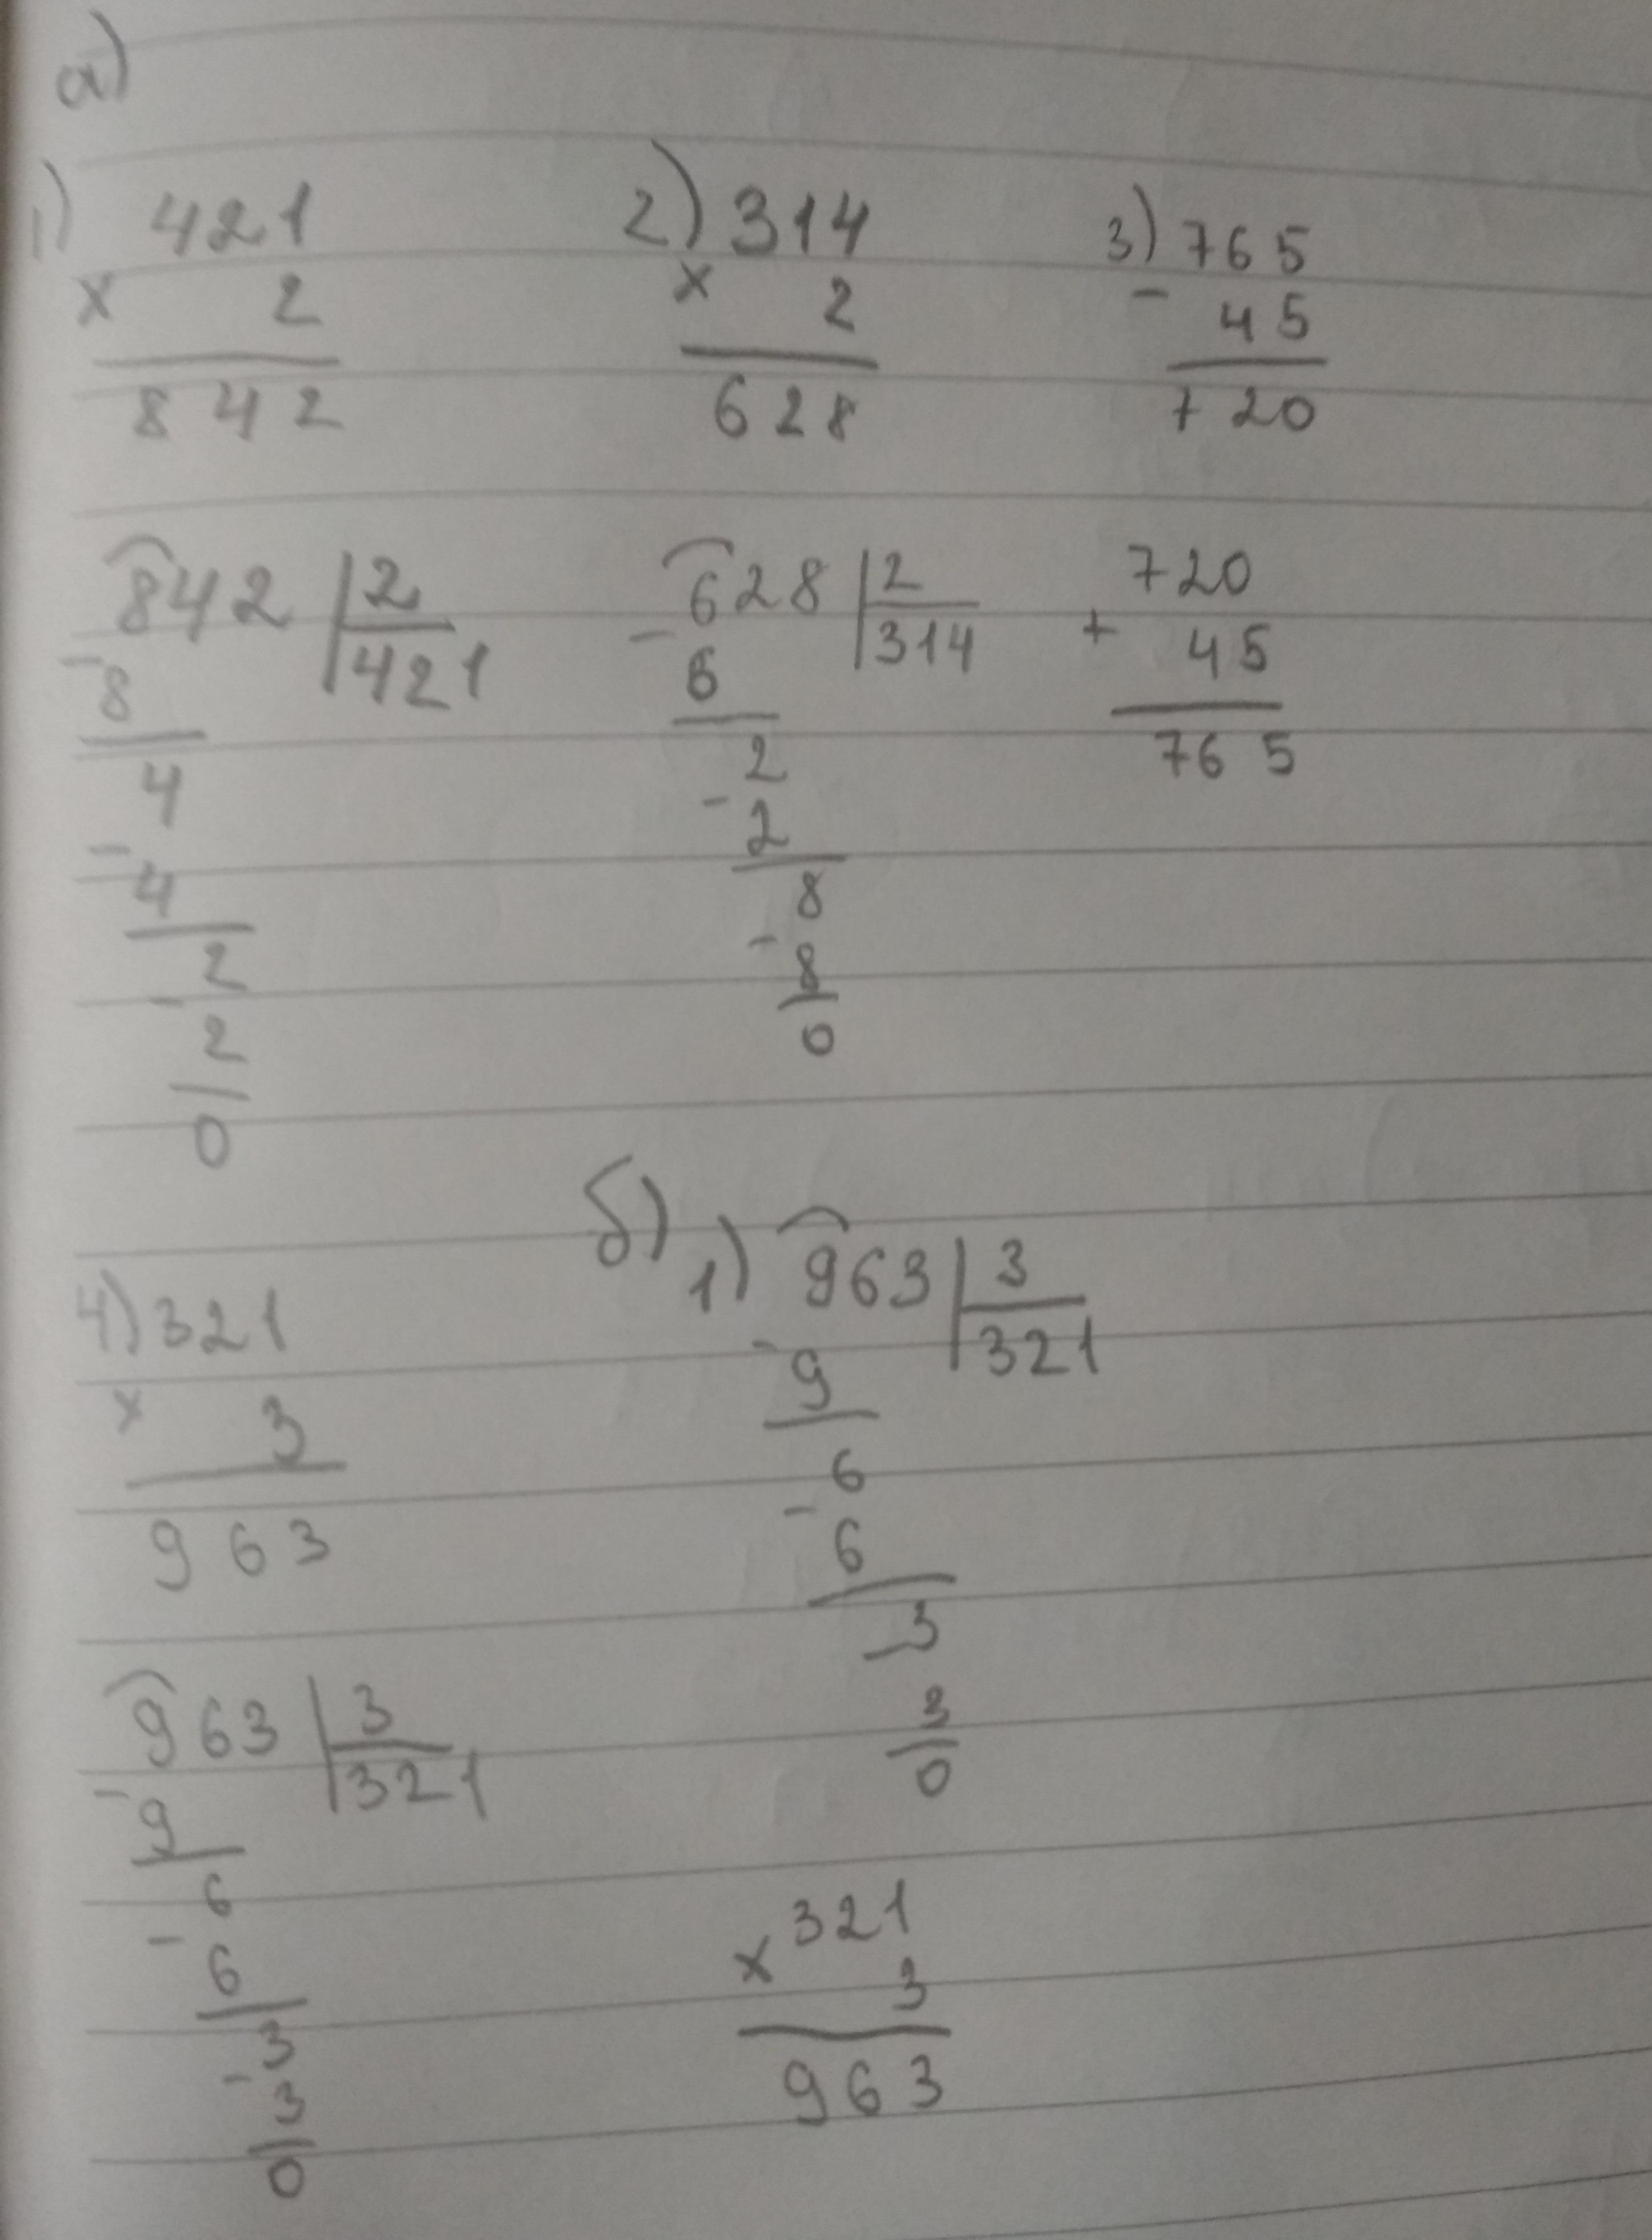 а)
1) 421
x 2
842
2) 314
x 2
628
3) 765
- 45
720
842 | 2
- 8 421
4
- 4
2
- 2
0
628 | 2
- 6 314
2
- 2
8
- 8
0
720
+ 45
765
4) 321
x 3
963
963 | 3
- 9 321
6
- 6
3
- 3
0
б)
1) 963 | 3
- 9 321
6
- 6
- 3
3
0
321
x 3
963